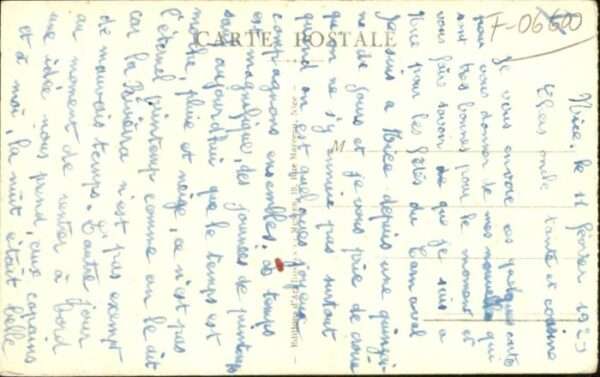 CARTE POSTALE
F-06600
M
Nice. le 11 février
Chers oncle tante et cousine
Je vous envoie ces quelques mots
pour vous donner de mes nouvelles qui
sont très bonnes pour le moment et
vous fais savoir que je suis à
Nice pour les fêtes du Carnaval
Je suis à Nice depuis une quinzi-
ne de jours et je vous prie de croire
que on ne s'y ennuie pas surtout
quand on est quelques joyeux
compagnons ensembles. Le temps
est magnifique, des journées de printemps
sauf aujourd'hui que le temps est
moche, pluie et neige, ce n'est pas
l'éternel printemps comme on le dit
car la Riviera n'est pas exempt
de mauvais temps. L'autre jour
au moment de rentrer à bord
une idée nous prend, deux copains
et à moi, la nuit était belle